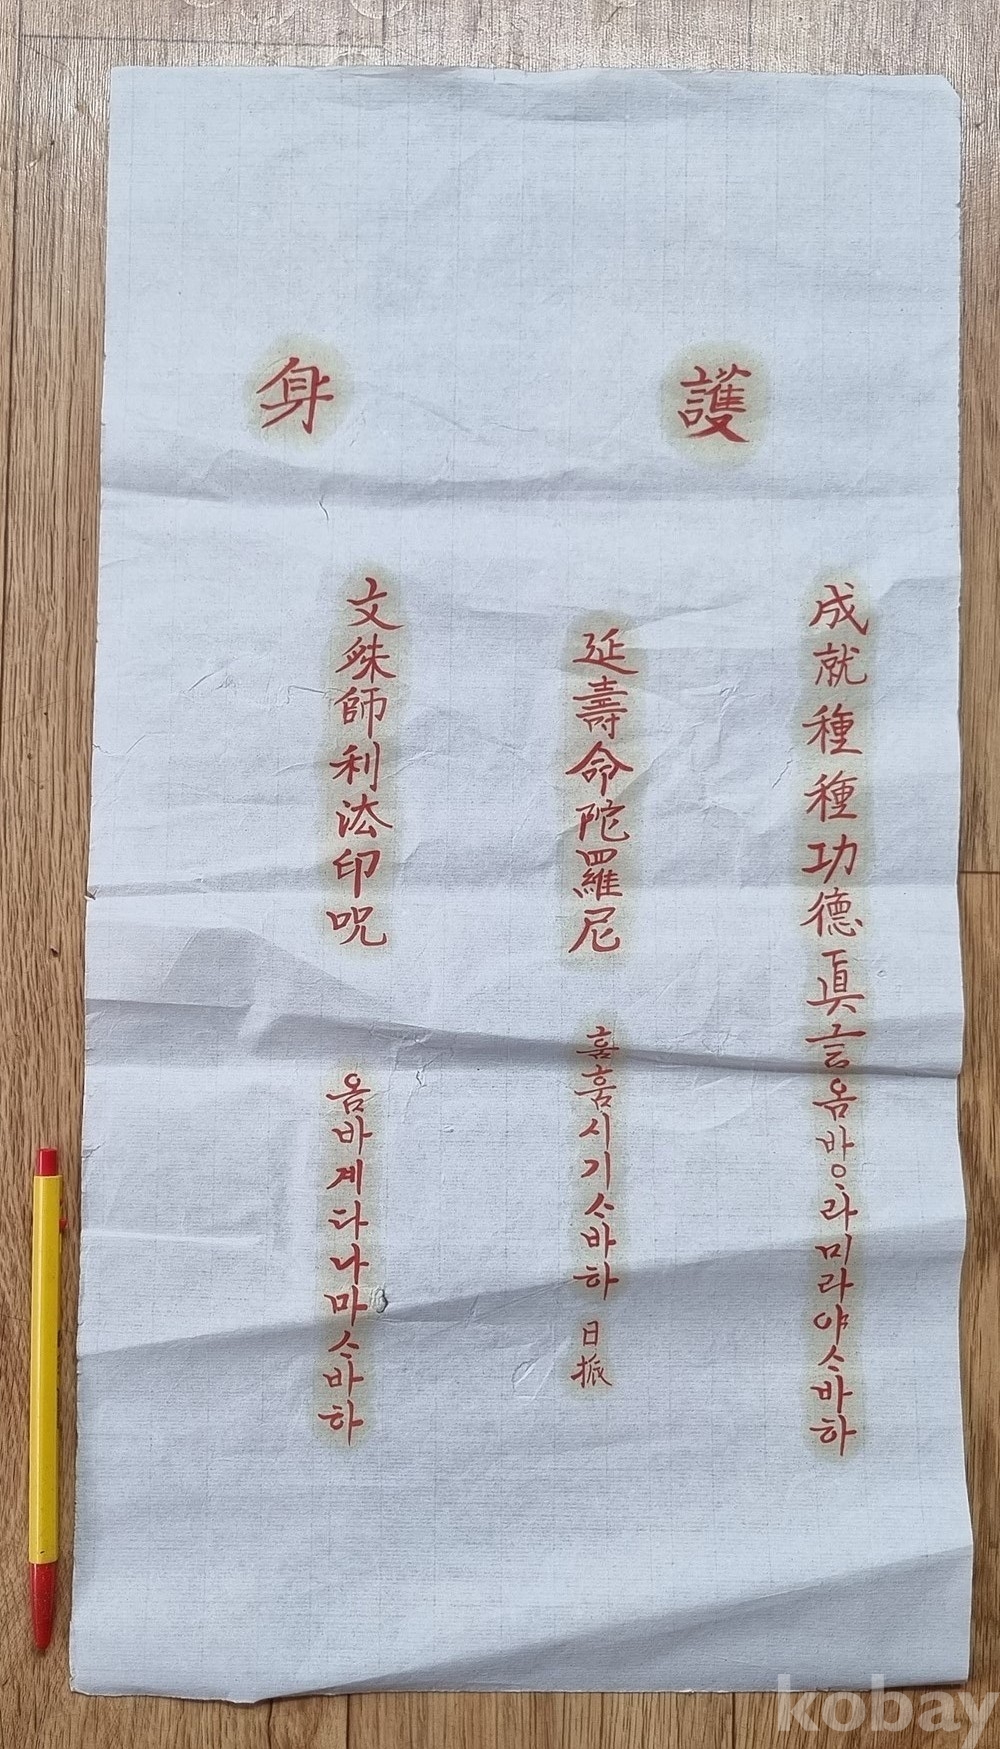 護身
成就種種功德眞言옴바ᄋᆞ라미라야스바하
延壽命陀羅尼 훔훔시기스바하 日振
文殊師利法印呪 옴바계타나마스바하
kobay